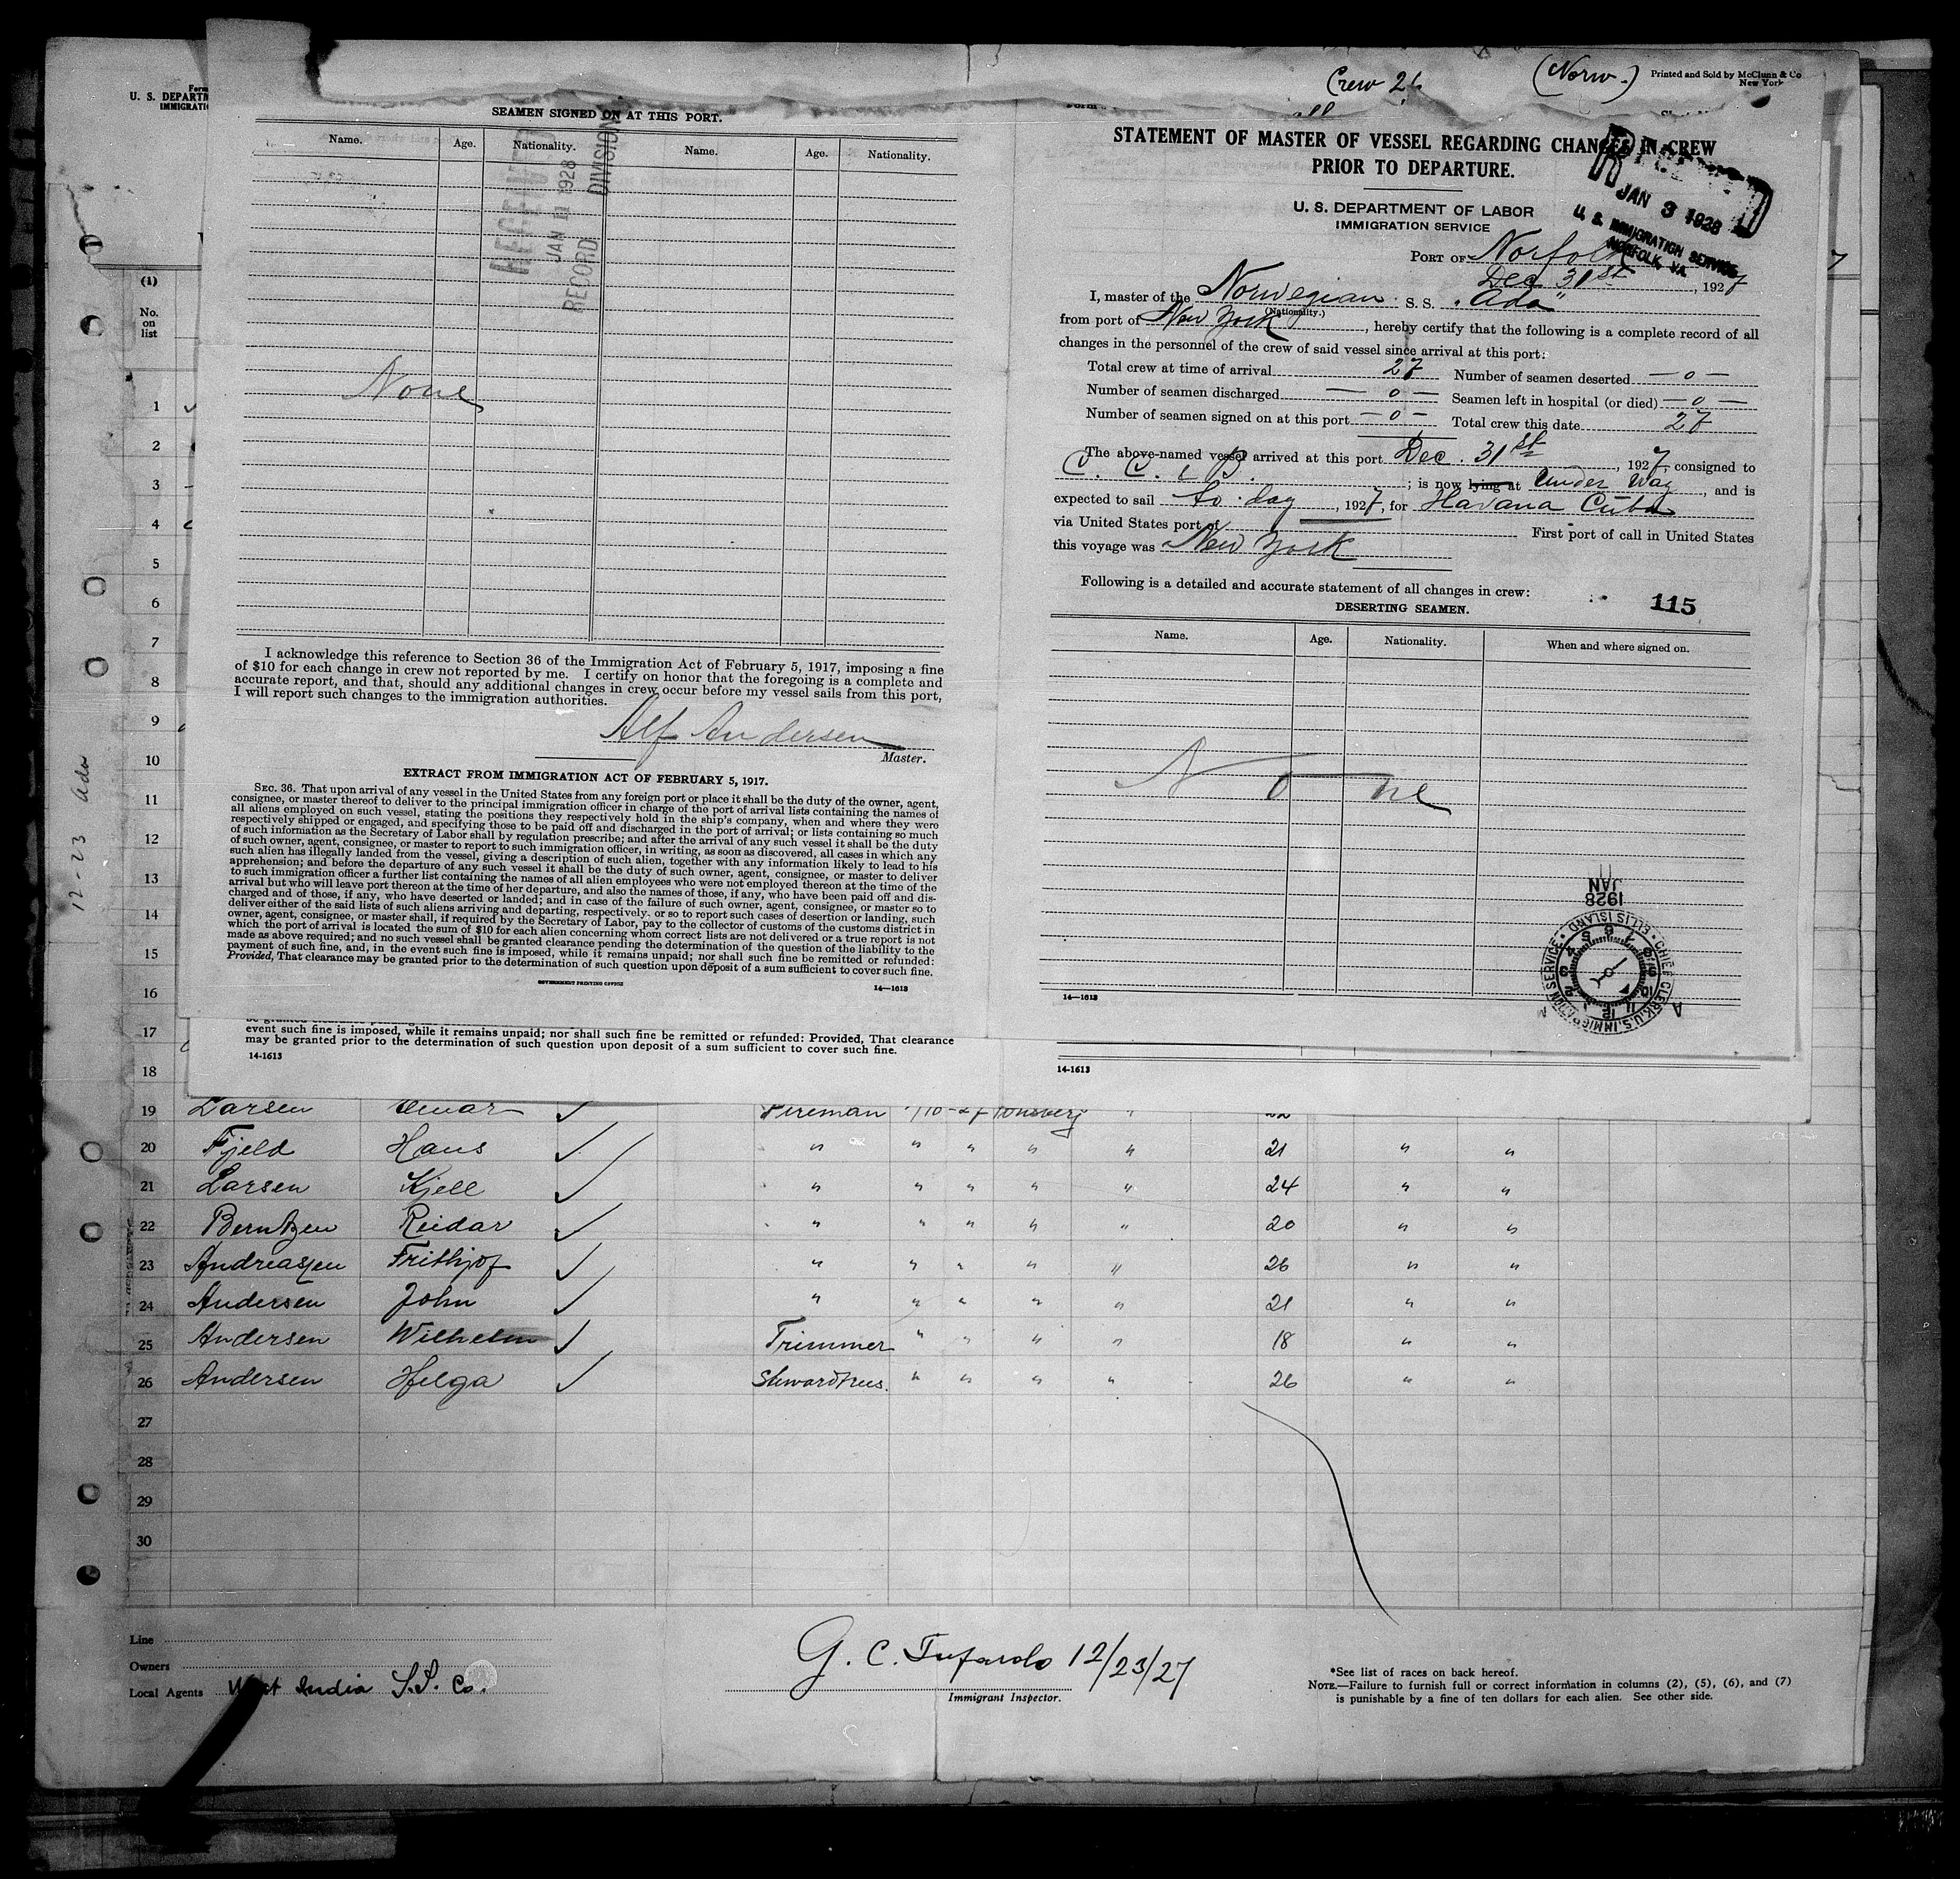 Crew 26
(Norw.)
Printed and Sold by McClunn & Co
New York
U. S. DEPARTM
IMMIGRATIO
SEAMEN SIGNED ON AT THIS PORT.
Name. Age. Nationality. Name. Age. Nationality.
RECEIVED
JAN 11 1928
RECORD DIVISION
None
I acknowledge this reference to Section 36 of the Immigration Act of February 5, 1917, imposing a fine
of $10 for each change in crew not reported by me. I certify on honor that the foregoing is a complete and
accurate report, and that, should any additional changes in crew occur before my vessel sails from this port,
I will report such changes to the immigration authorities.
Alf Andersen
Master.
EXTRACT FROM IMMIGRATION ACT OF FEBRUARY 5, 1917.
SEC. 36. That upon arrival of any vessel in the United States from any foreign port or place it shall be the duty of the owner, agent,
consignee, or master thereof to deliver to the principal immigration officer in charge of the port of arrival lists containing the names of
all aliens employed on such vessel, stating the positions they respectively hold in the ship's company, when and where they were
respectively shipped or engaged, and specifying those to be paid off and discharged in the port of arrival; or lists containing so much
of such information as the Secretary of Labor shall by regulation prescribe; and after the arrival of any such vessel it shall be the duty
of such owner, agent, consignee, or master to report to such immigration officer, in writing, as soon as discovered, all cases in which any
such alien has illegally landed from the vessel, giving a description of such alien, together with any information likely to lead to his
apprehension; and before the departure of any such vessel it shall be the duty of such owner, agent, consignee, or master to deliver
to such immigration officer a further list containing the names of all alien employees who were not employed thereon at the time of the
arrival but who will leave port thereon at the time of her departure, and also the names of those, if any, who have been paid off and dis-
charged and of those, if any, who have deserted or landed; and in case of the failure of such owner, agent, consignee, or master so to
deliver either of the said lists of such aliens arriving and departing, respectively, or so to report such cases of desertion or landing, such
owner, agent, consignee, or master shall, if required by the Secretary of Labor, pay to the collector of customs of the customs district in
which the port of arrival is located the sum of $10 for each alien concerning whom correct lists are not delivered or a true report is not
made as above required; and no such vessel shall be granted clearance pending the determination of the question of the liability to the
payment of such fine, and, in the event such fine is imposed, while it remains unpaid; nor shall such fine be remitted or refunded:
Provided, That clearance may be granted prior to the determination of such question upon deposit of a sum sufficient to cover such fine.
GOVERNMENT PRINTING OFFICE
14—1613
event such fine is imposed, while it remains unpaid; nor shall such fine be remitted or refunded: Provided, That clearance
may be granted prior to the determination of such question upon deposit of a sum sufficient to cover such fine.
14-1613
STATEMENT OF MASTER OF VESSEL REGARDING CHANGES IN CREW
PRIOR TO DEPARTURE.
U. S. DEPARTMENT OF LABOR
IMMIGRATION SERVICE
RECEIVED
JAN 3 1928
U. S. IMMIGRATION SERVICE
NORFOLK, VA.
PORT OF Norfolk
Dec 31st, 1927
I, master of the Norwegian S. S. "Ada"
(Nationality.)
from port of New York, hereby certify that the following is a complete record of all
changes in the personnel of the crew of said vessel since arrival at this port:
Total crew at time of arrival 27 Number of seamen deserted — 0 —
Number of seamen discharged — 0 — Seamen left in hospital (or died) — 0 —
Number of seamen signed on at this port — 0 — Total crew this date 27
The above-named vessel arrived at this port Dec. 31st, 1927, consigned to
C. C. & B.; is now lying at Under Way, and is
expected to sail to-day, 1927, for Havana Cuba
via United States port of First port of call in United States
this voyage was New York
Following is a detailed and accurate statement of all changes in crew:
115
DESERTING SEAMEN.
Name. Age. Nationality. When and where signed on.
None
1928 JAN 11
CHIEF CLERK, U.S. IMMIGRATION SERVICE • ELLIS ISLAND •
14—1613
14-1613
12-23 Ada
(1)
No.
on
list
1
2
3
4
5
6
7
8
9
10
11
12
13
14
15
16
17
18
19 Larsen Einar ✓ Fireman Tonsberg "
20 Fjeld Hans ✓ " " " " " 21 " "
21 Larsen Kjell ✓ " " " " " 24 " "
22 Berntzen Reidar ✓ " " " " " 20 " "
23 Andreassen Frithjof ✓ " " " " " 26 " "
24 Andersen John ✓ " " " " " 21 " "
25 Andersen Wilhelm ✓ Trimmer " " " " 18 " "
26 Andersen Helga ✓ Stewardress. " " " " 26 " "
27
28
29
30
Line
Owners
Local Agents West India S.S. Co.
G. C. Tufardo 12/23/27
Immigrant Inspector.
*See list of races on back hereof.
NOTE.—Failure to furnish full or correct information in columns (2), (5), (6), and (7)
is punishable by a fine of ten dollars for each alien. See other side.